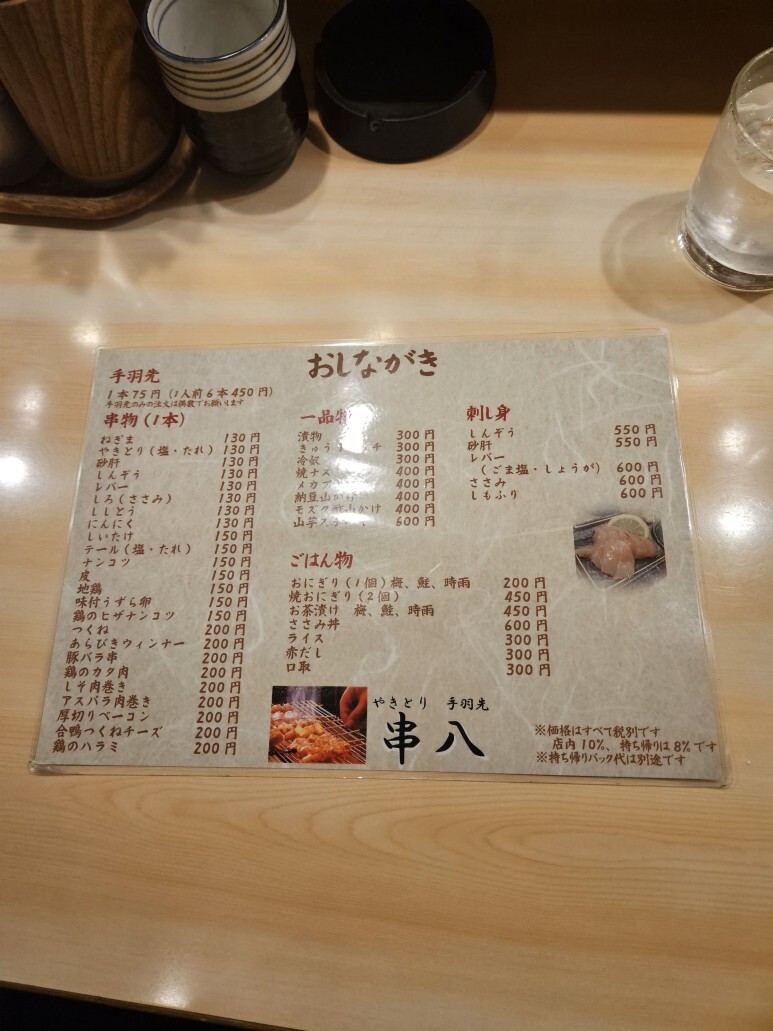 おしながき
手羽先
1本75円（1人前6本450円）
手羽先のみの注文は偶数でお願いします
串物（1本）
ねぎま 130円
やきとり（塩・たれ） 130円
砂肝 130円
しんぞう 130円
レバー 130円
しろ（ささみ） 130円
ししとう 130円
にんにく 130円
しいたけ 150円
テール（塩・たれ） 150円
ナンコツ 150円
皮 150円
地鶏 150円
味付うずら卵 150円
鶏のヒザナンコツ 150円
つくね 200円
あらびきウィンナー 200円
豚バラ串 200円
鶏のカタ肉 200円
しそ肉巻き 200円
アスパラ肉巻き 200円
厚切りベーコン 200円
合鴨つくねチーズ 200円
鶏のハラミ 200円
一品物
漬物 300円
きゅうり 300円
冷奴 300円
焼ナス 400円
メカブ 400円
納豆山かけ 400円
モズク 山かけ 400円
山芋 600円
ごはん物
おにぎり（1個）梅、鮭、時雨 200円
焼おにぎり（2個） 450円
お茶漬け 梅、鮭、時雨 450円
ささみ丼 600円
ライス 300円
赤だし 300円
口取 300円
刺し身
しんぞう 550円
砂肝 550円
レバー
（ごま塩・しょうが） 600円
ささみ 600円
しもふり 600円
やきとり 手羽先
串八
※価格はすべて税別です
店内10%、持ち帰りは8%です
※持ち帰りパック代は別途です